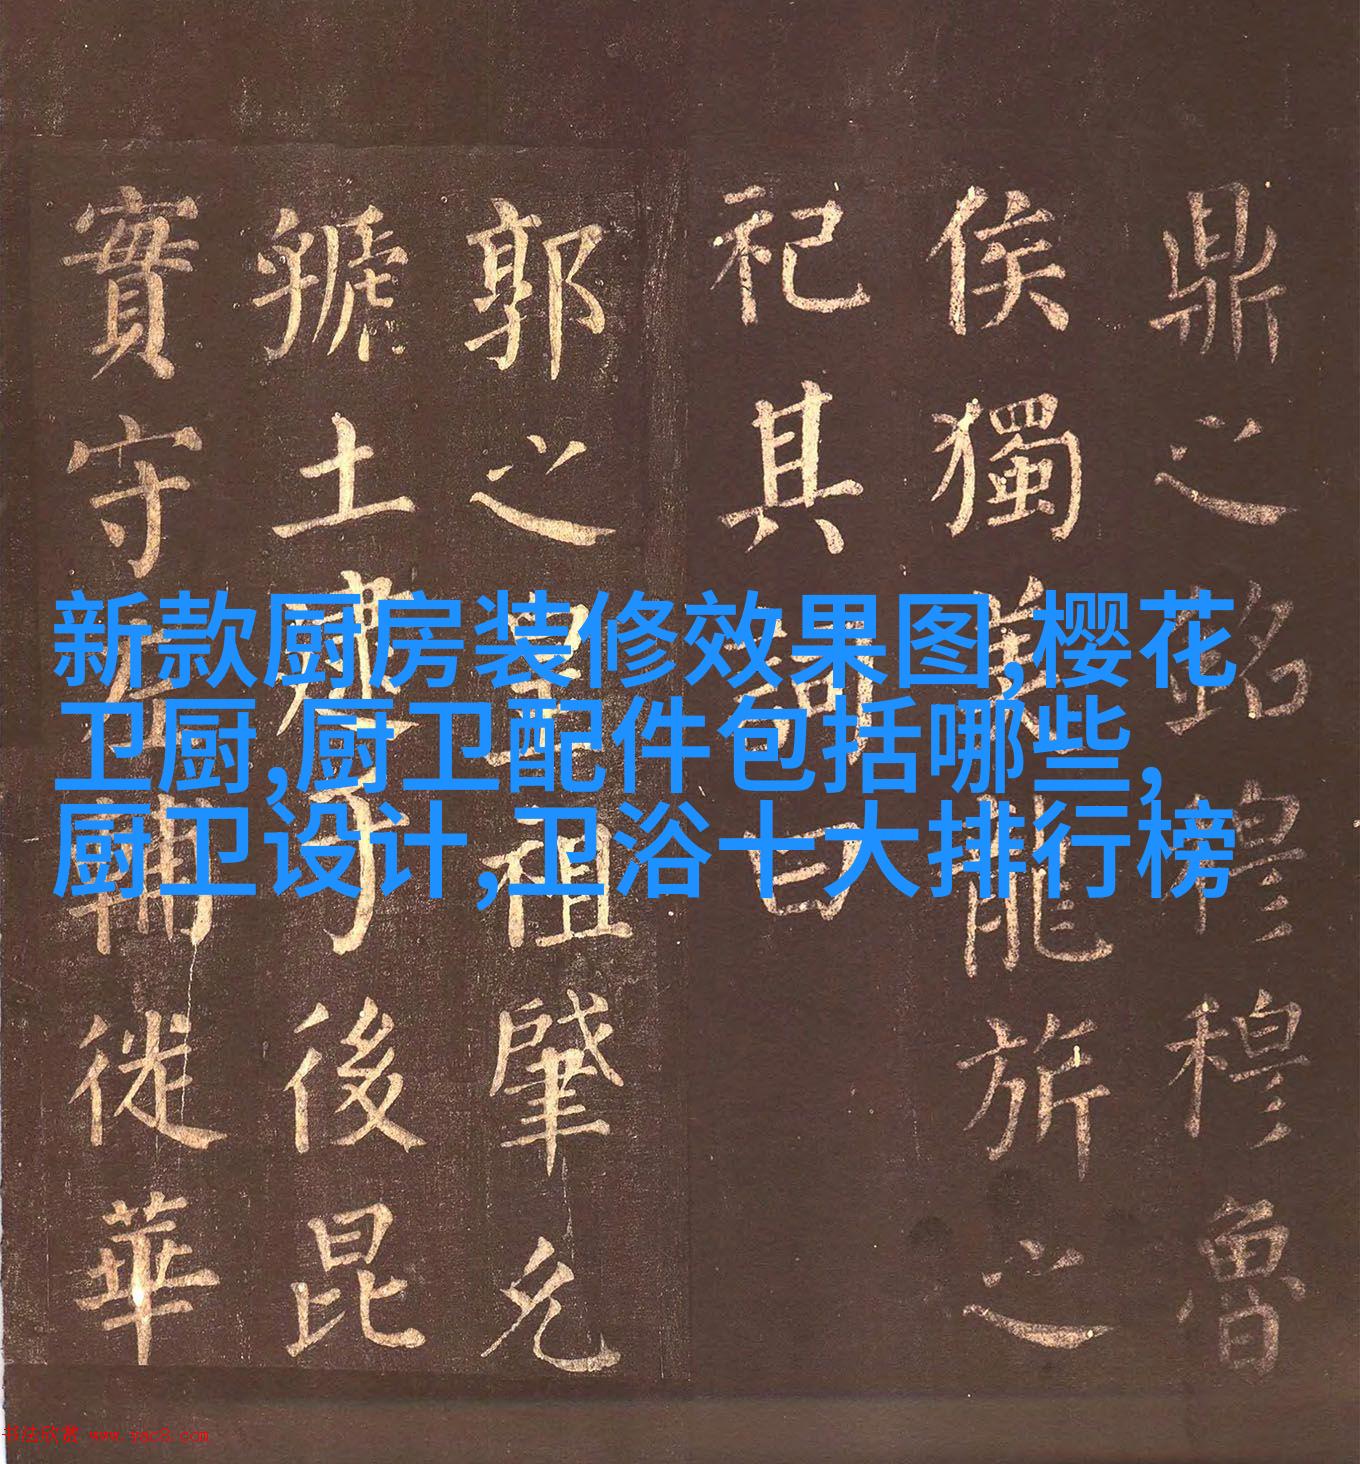 鼎之銘穆穆魯
侯獨美龍旂之
祀其詞曰
郭之皇祖肇允
虢土逮于後昆
實守左輔徙華
新款厨房装修效果图,樱花
卫厨,厨卫配件包括哪些,
厨卫设计,卫浴十大排行榜
书法欣赏 www.yac8.com